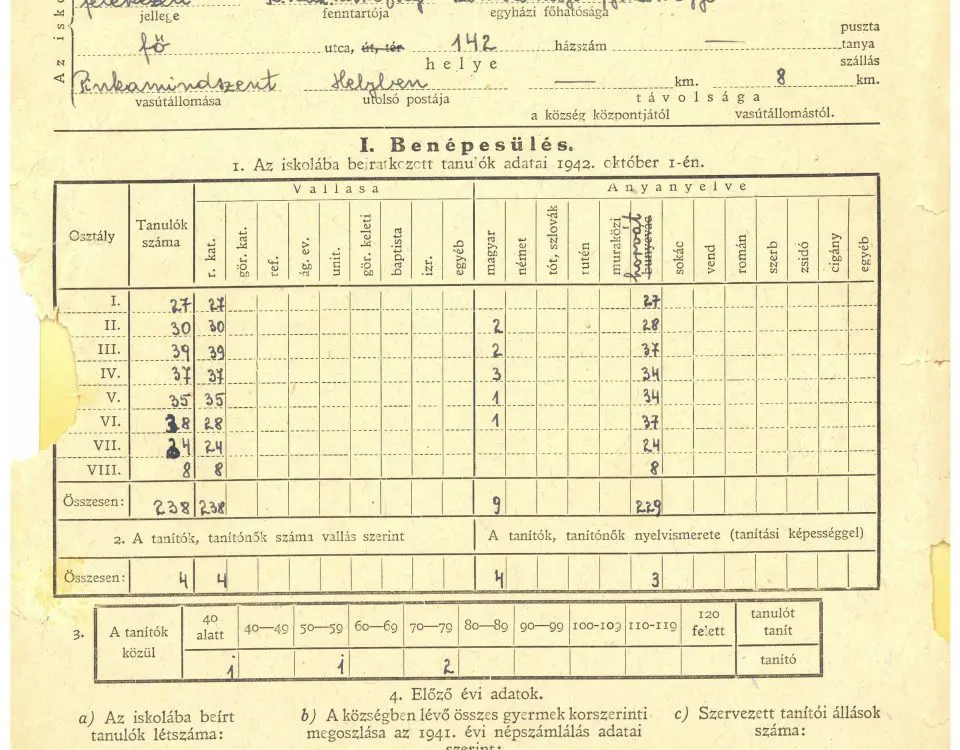 jellege fenntartója egyházi főhatósága
Az isko
fő utca, út, tér 142 házszám — puszta tanya szállás
helye
Pinkamindszent Helyben — km. 8 km.
vasútállomása utolsó postája távolsága
a község központjától vasútállomástól.
I. Benépesülés.
1. Az iskolába beiratkozett tanulók adatai 1942. október 1-én.
Vallása Anyanyelve
Osztály Tanulók száma r. kat. gör. kat. ref. ág. ev. unit. gör. keleti baptista izr. egyéb magyar német tót, szlovák rutén muraközi horvát bunyevác sokác vend román szerb zsidó cigány egyéb
I. 27 27 27
II. 30 30 2 28
III. 39 39 2 37
IV. 37 37 3 34
V. 35 35 1 34
VI. 38 28 1 37
VII. 24 24 24
VIII. 8 8 8
Összesen: 238 238 9 229
2. A tanítók, tanítónők száma vallás szerint A tanítók, tanítónők nyelvismerete (tanítási képességgel)
Összesen: 4 4 4 3
3. A tanítók közül 40 alatt 40—49 50—59 60—69 70—79 80—89 90—99 100-109 110-119 120 felett tanulót tanít
1 1 2 tanító
4. Előző évi adatok.
a) Az iskolába beírt b) A községben lévő összes gyermek korszerinti c) Szervezett tanítói állások
tanulók létszáma: megoszlása az 1941. évi népszámlálás adatai száma:
szerint: